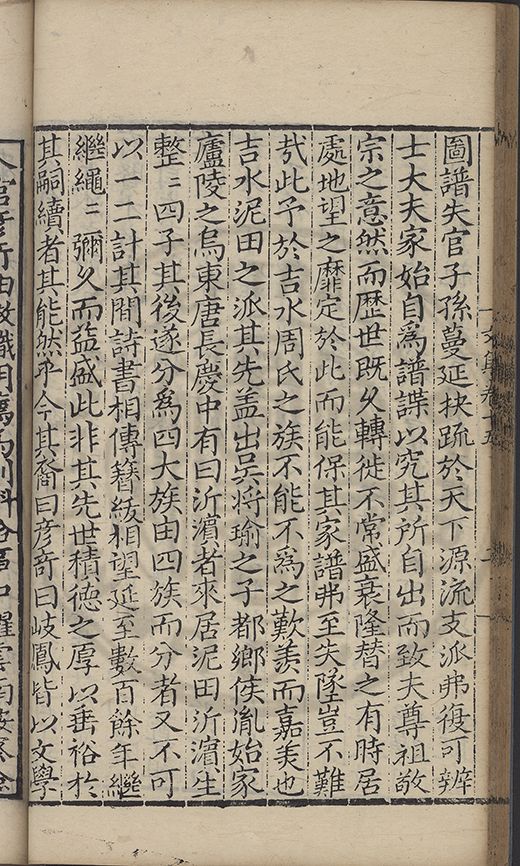 圖譜失官子孫蔓延抉疏於天下源流支派弗復可辨
士大夫家始自爲譜諜以究其所自出而致夫尊祖敬
宗之意然而歴世既乆轉徙不常盛衰隆替之有時居
處地望之靡定於此而能保其家譜弗至失墜豈不難
㢤此予於吉水周氏之族不能不爲之歎羨而嘉美也
吉水泥田之派其先盖出吴将瑜之子都鄉侯胤始家
廬陵之烏東唐長慶中有曰沂濵者來居泥田沂濵生
整〻四子其後遂分爲四大族由四族而分者又不可
以一二計其間詩書相傳簮紱相望延至數百餘年繼
繼繩〻彌乆而益盛此非其先世積德之厚以垂裕於
其嗣續者其能然乎今其裔曰彦竒曰岐鳳皆以文學